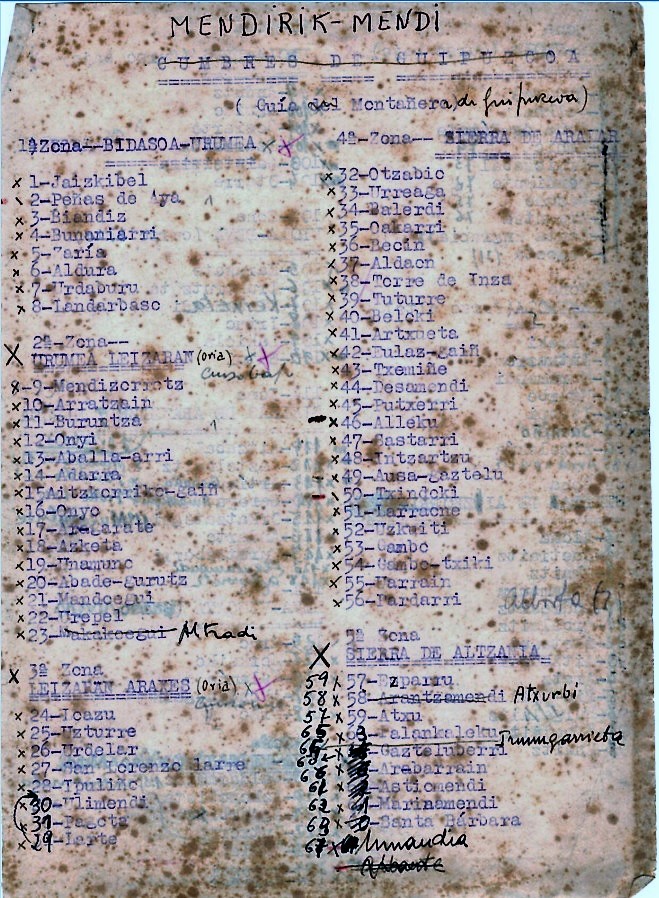 MENDIRIK-MENDI
CUMBRES DE GUIPUZCOA
( Guía del Montañera, de Guipuzcoa)
1ª Zona--BIDASOA-URUMEA
1-Jaizkibel
2-Peñas de Aya
3-Biandiz
4-Bunaniarri
5-Zaría
6-Aldura
7-Urdaburu
8-Landarbaso
2ª-Zona--
URUMEA LEIZARAN (Oria)
9-Mendizorrotz
10-Arratzain
11-Buruntza
12-Onyi
13-Aballa-arri
14-Adarra
15Aitzkorriko-gaiñ
16-Onyo
17-Aregarate
18-Azketa
19-Unamuno
20-Abade-gurutz
21-Mandoegui
22-Urepel
23-Makakoegui Altxadi
3ª Zona
LEIZARAN ARAXES (Oria)
24-Ioazu
25-Uzturre
26-Urdelar
27-San Lorenzo larre
28-Ipuliño
30-Ulimendi
31-Pagota
29-Larte
4ª-Zona-- SIERRA DE ARALAR
32-Otzabio
33-Urreaga
34-Balerdi
35-Oakarri
36-Becin
37-Aldaon
38-Torre de Inza
39-Tuturre
40-Beloki
41-Artxueta
42-Eulaz-gaiñ
43-Txemiñe
44-Desamendi
45-Putxerri
46-Alleku
47-Sastarri
48-Intzartzu
49-Ausa-gaztelu
50-Txindoki
51-Larraone
52-Uzkuiti
53-Gambo
54-Gambo-txiki
55-Uarrain
56-Pardarri
5ª Zona
SIERRA DE ALTZANIA
59 57-Ezparru
58 58-Arantzamendi Atxurbi
57 59-Atxu
Palankaleku
Gazteluberri
Arabarrain
Astiomendi
Marinamendi
Santa Bárbara
Umandia